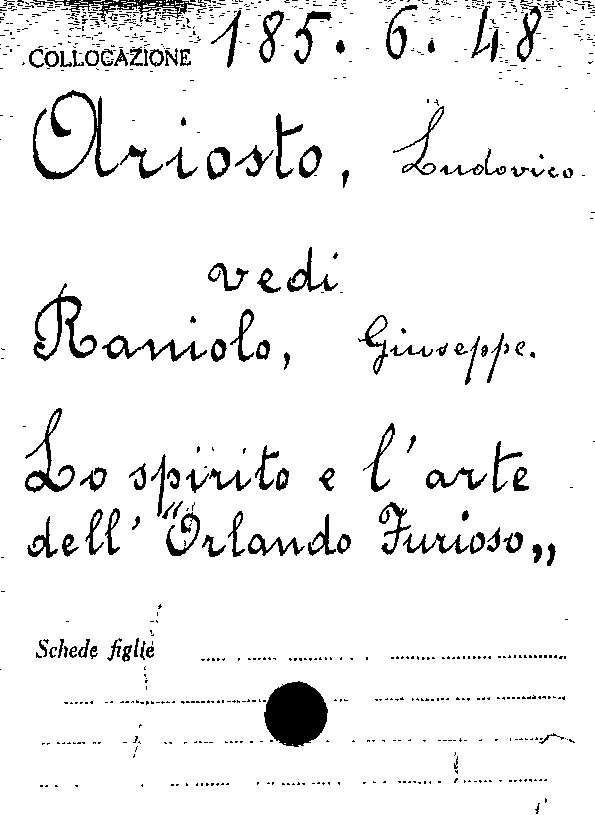 COLLOCAZIONE 185. 6. 48
Ariosto, Ludovico
vedi
Raniolo, Giuseppe.
Lo spirito e l'arte
dell' "Orlando Furioso„
Schede figlie